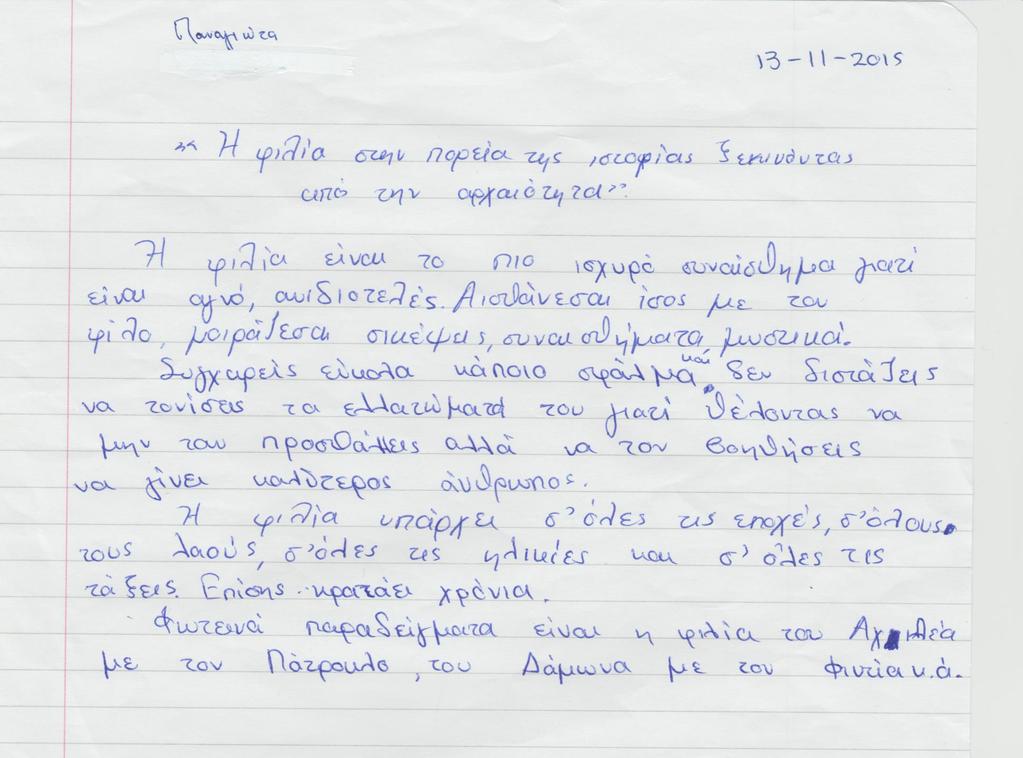 Παναγιώτα
13-11-2015
"Η φιλία στην πορεία της ιστορίας ξεκινώντας
από την αρχαιότητα".
Η φιλία είναι το πιο ισχυρό συναίσθημα γιατί
είναι αγνό, ανιδιοτελές. Αισθάνεσαι ίσος με τον
φίλο, μοιράζεσαι σκέψεις, συναισθήματα, μυστικά.
Συγχωρείς εύκολα κάποιο σφάλμα και δεν διστάζεις
να τονίσεις τα ελλατώματά του γιατί θέλοντας να
μην τον προσβάλλεις αλλά να τον βοηθήσεις
να γίνει καλύτερος άνθρωπος.
Η φιλία υπάρχει σ'όλες τις εποχές, σ'όλους
τους λαούς, σ'όλες τις ηλικίες και σ'όλες τις
τάξεις. Επίσης κρατάει χρόνια.
Φωτεινά παραδείγματα είναι η φιλία του Αχιλλέα
με τον Πάτροκλο, του Δάμωνα με τον Φιντία κ.ά.